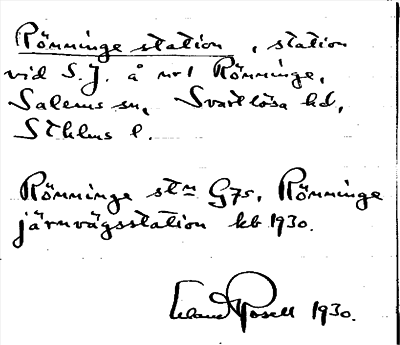 Rönninge station, station
vid S.J. å nr 1 Rönninge,
Salems sn, Svartlösa hd,
Sthlms l.
Rönninge stn G7s, Rönninge
järnvägsstation kb 1930.
Erland Rosell 1930.